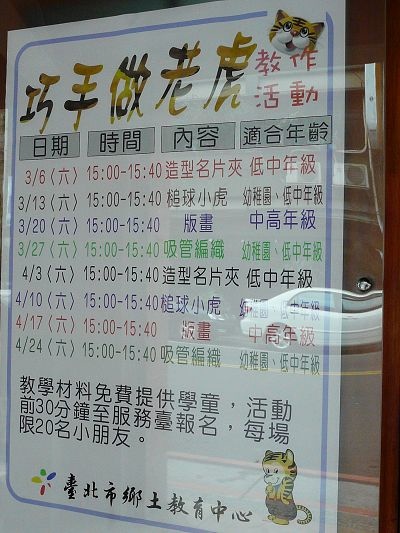 巧手做老虎 教作活動
日期 時間 內容 適合年齡
3/6〈六〉 15:00-15:40 造型名片夾 低中年級
3/13〈六〉 15:00-15:40 槌球小虎 幼稚園、低中年級
3/20〈六〉 15:00-15:40 版畫 中高年級
3/27〈六〉 15:00-15:40 吸管編織 幼稚園、低中年級
4/3〈六〉 15:00-15:40 造型名片夾 低中年級
4/10〈六〉 15:00-15:40 槌球小虎 幼稚園、低中年級
4/17〈六〉 15:00-15:40 版畫 中高年級
4/24〈六〉 15:00-15:40 吸管編織 幼稚園、低中年級
教學材料免費提供學童，活動
前30分鐘至服務臺報名，每場
限20名小朋友。
臺北市鄉土教育中心